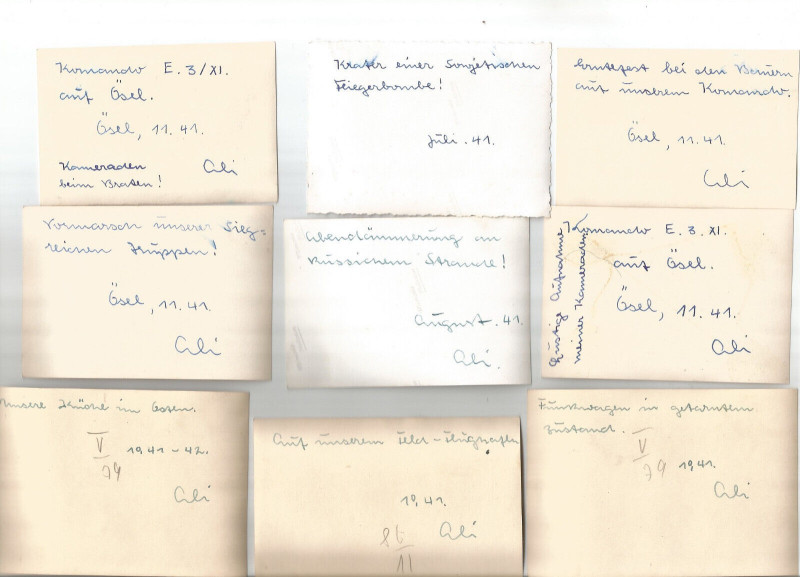 Komando E. 3/XI.
auf Ösel.
Ösel, 11.41.
Kameraden
beim Braten!
Ali
Krater einer Sowjetischen
Fliegerbombe!
Juli. 41.
Erntefest bei den Bauern
auf unserem Komando.
Ösel, 11.41.
Ali
Vormarsch unserer Sieg=
reichen Truppen!
Ösel, 11.41.
Ali
Abenddämmerung am
Russischem Strande!
August. 41.
Ali.
Lustige Aufnahme
meiner Kameraden
Komando E. 3. XI.
auf Ösel.
Ösel, 11.41.
Ali
Unsere Küche im Osten.
V
1941-42.
Ali
Auf unserem Feld-Flughafen
1941.
Ali
11
Funkwagen in getarntem
zustand.
V
1941.
Ali